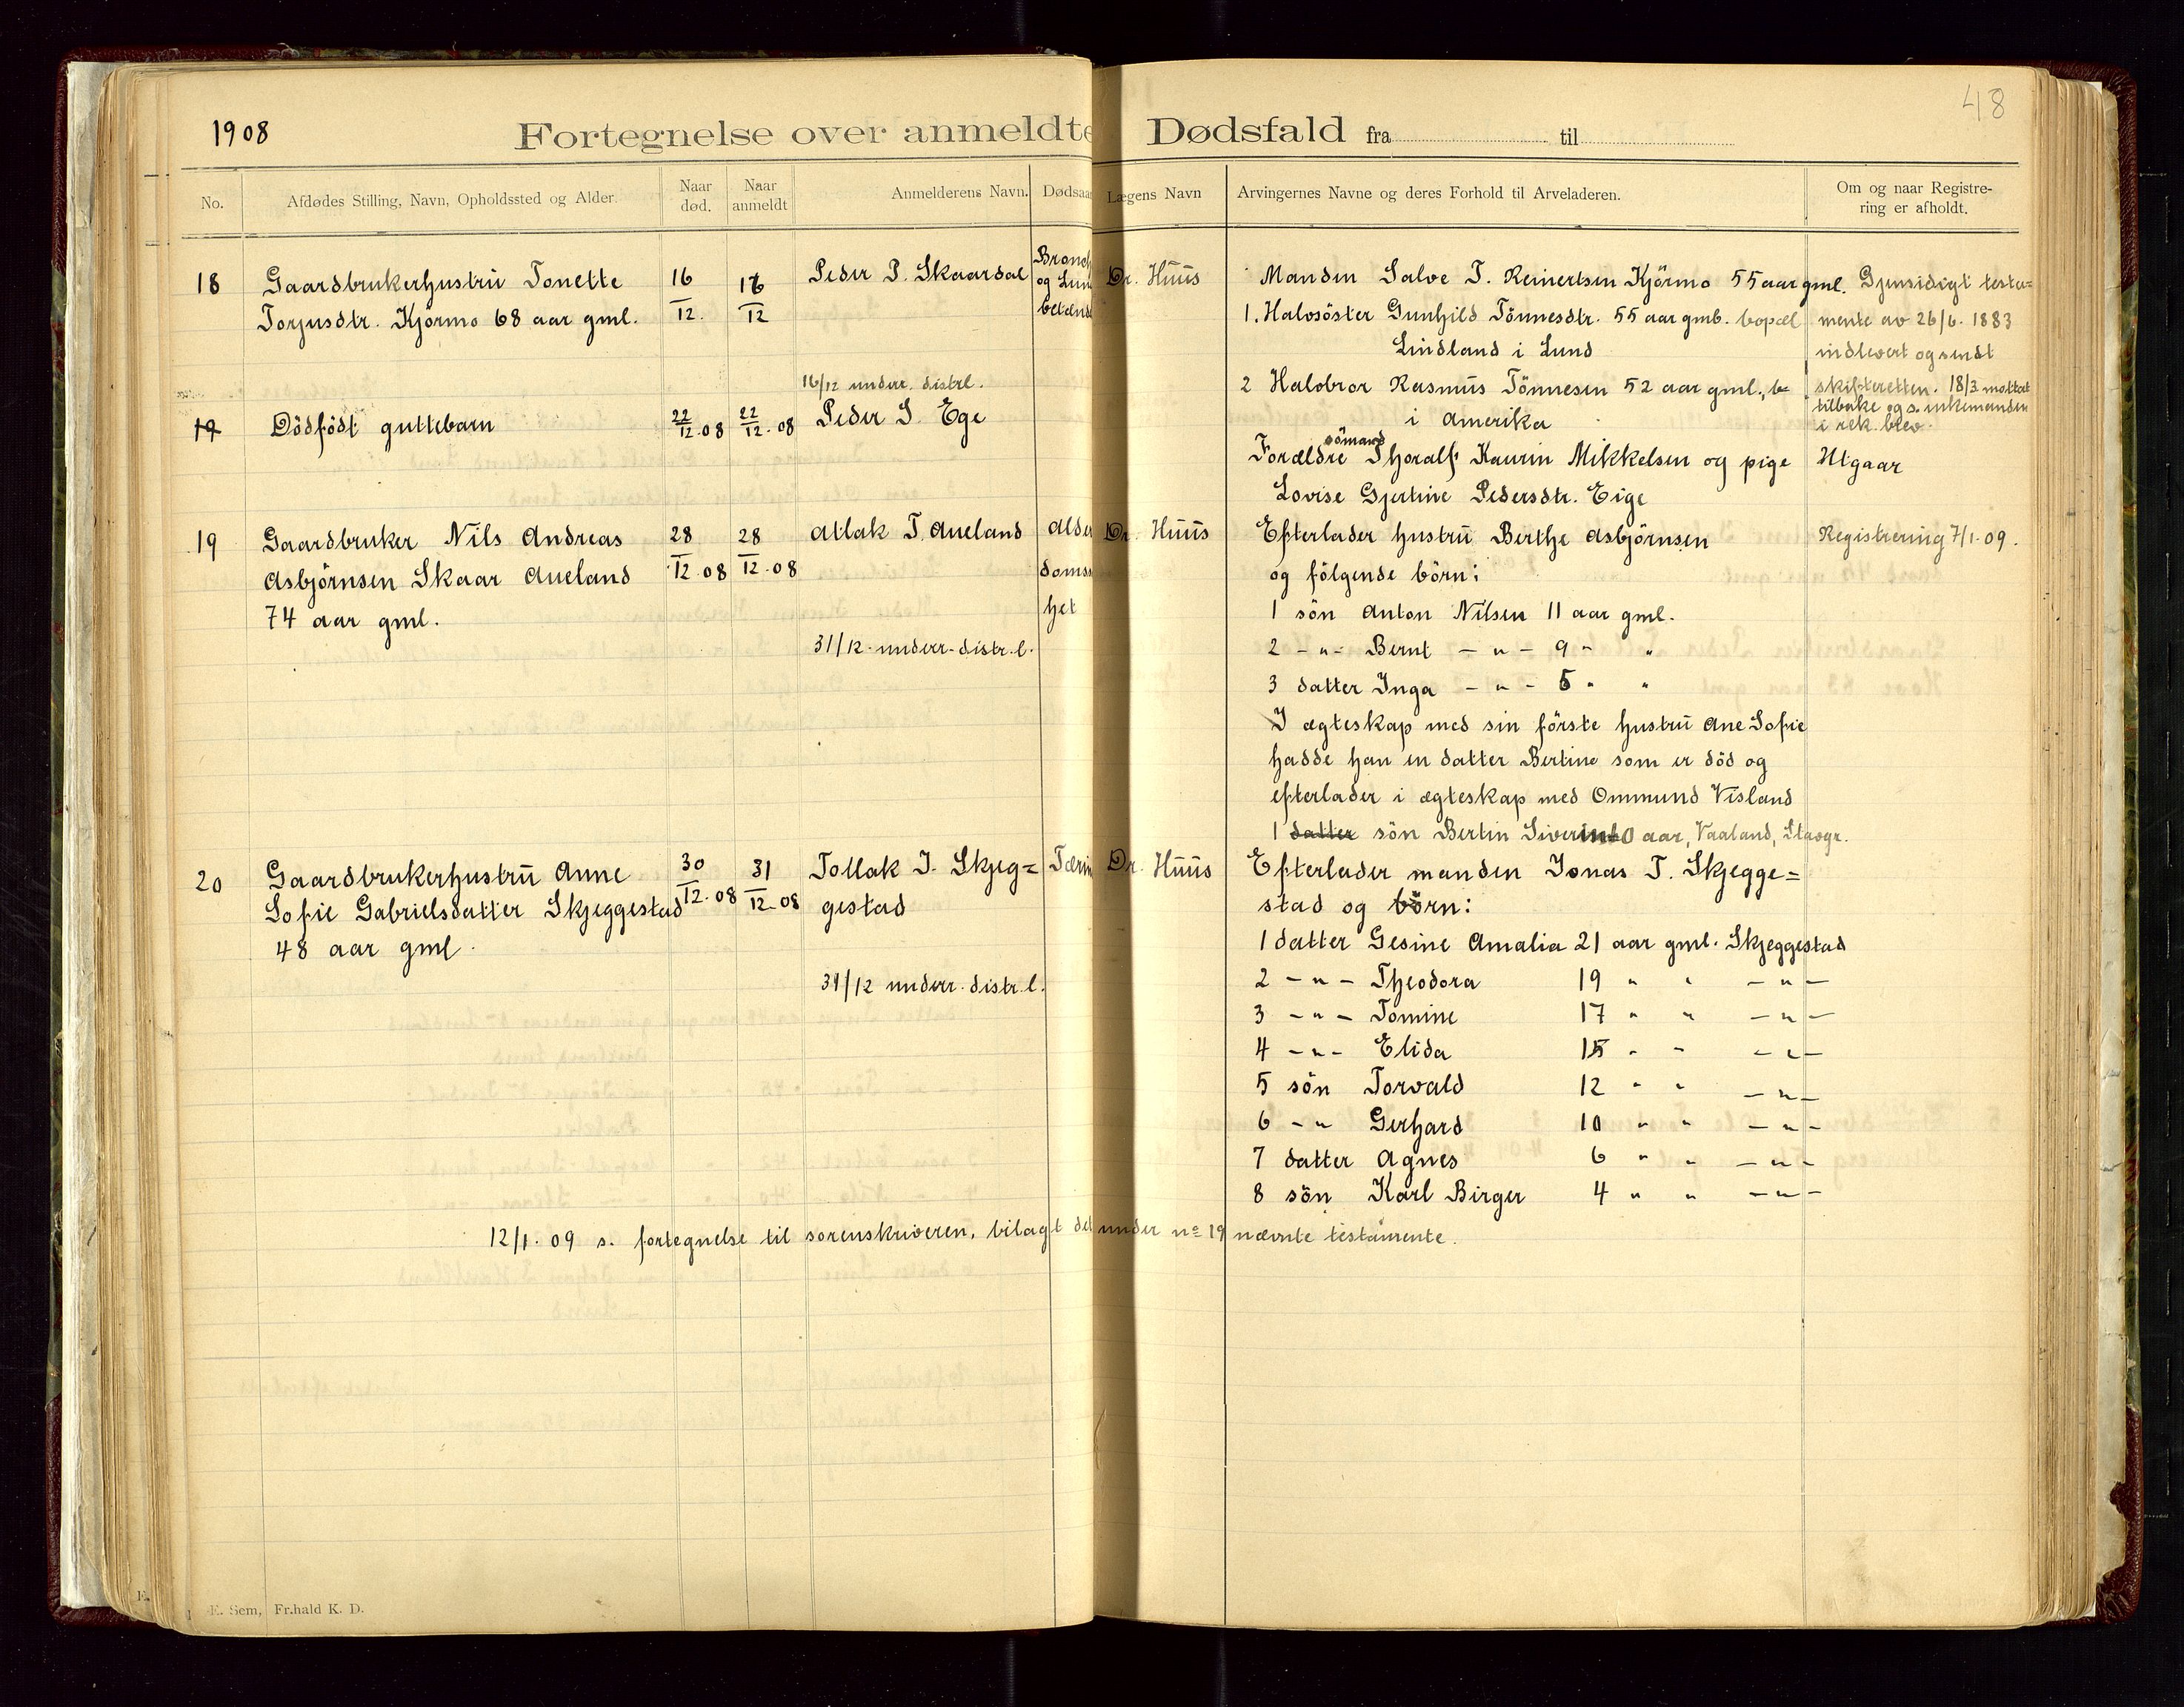 1908
Fortegnelse over anmeldte Dødsfald fra til
48
No.
Afdødes Stilling, Navn, Opholdssted og Alder.
Naar død.
Naar anmeldt
Anmelderens Navn.
Dødsaar
Lægens Navn
Arvingernes Navne og deres Forhold til Arveladeren.
Om og naar Registre-
ring er afholdt.
18
Gaardbrukerhustru Tonette
Torjusdtr. Kjörmo 68 aar gml.
16
12.
16
12
Peder P. Skaardal
16/12 underr. distrl.
Bronch
og Lun
betænd
Dr. Huus
Manden Salve T. Reinertsen Kjörmo 55 aar gml.
1. Halvsöster Gunhild Tönnesdtr. 55 aar gml. bopæl
Lindland i Lund
2 Halvbror Rasmus Tönnesen 52 aar gml., b.
i Amerika
Gjensidigt testa=
mente av 26/6. 1883
indlevert og sendt
skifteretten. 18/3 mottat
tilbake og s. enkemanden
i rek. blev.
19
Dödfödt guttebarn
22/12.08
22/12.08
Peder S. Ege
Forældre sömand Thoralf Kaurin Mikkelsen og pige
Lovise Gjertine Pedersdtr. Eige
Utgaar
19
Gaardbruker Nils Andreas
Asbjörnsen Skaar Aueland
74 aar gml.
28
12.08
28
12.08
Atlak T Aueland
31/12. underr. distr.l.
Alder
doms
het
Dr. Huus
Efterlader hustru Berthe Asbjörnsen
og fölgende börn:
1 sön Anton Nilsen 11 aar gml.
2 -"- Bernt -"- 9 " "
3 datter Inga -"- 5 " "
I ægteskap med sin förste hustru Ane Sofie
hadde han en datter Bertine som er död og
efterlader i ægteskap med Ommund Visland
1 datter sön Bertin Siverin 10 aar, Vaaland, Stavgr.
Registrering 7/1.09.
20
Gaardbrukerhustru Anne
Sofie Gabrielsdatter Skjeggestad
48 aar gml.
30
12.08
31
12.08
Tollak J. Skjeg=
gestad
31/12 underr. distr.l.
Tærin
Dr. Huus
Efterlader manden Jonas T. Skjegge=
stad og börn:
1 datter Gesine Amalia 21 aar gml. Skjeggestad
2 -"- Theodora 19 " " -"-
3 -"- Tomine 17 " " -"-
4 -"- Elida 15 " " -"-
5 sön Torvald 12 " " -"-
6 -" Gerhard 10 " " -"-
7 datter Agnes 6 " " -"-
8 sön Karl Birger 4 " " -"-
12/1. 09 s. fortegnelse til sorenskriveren, bilagt det under no 19 nævnte testamente.
E. Sem, Fr.hald K. D.